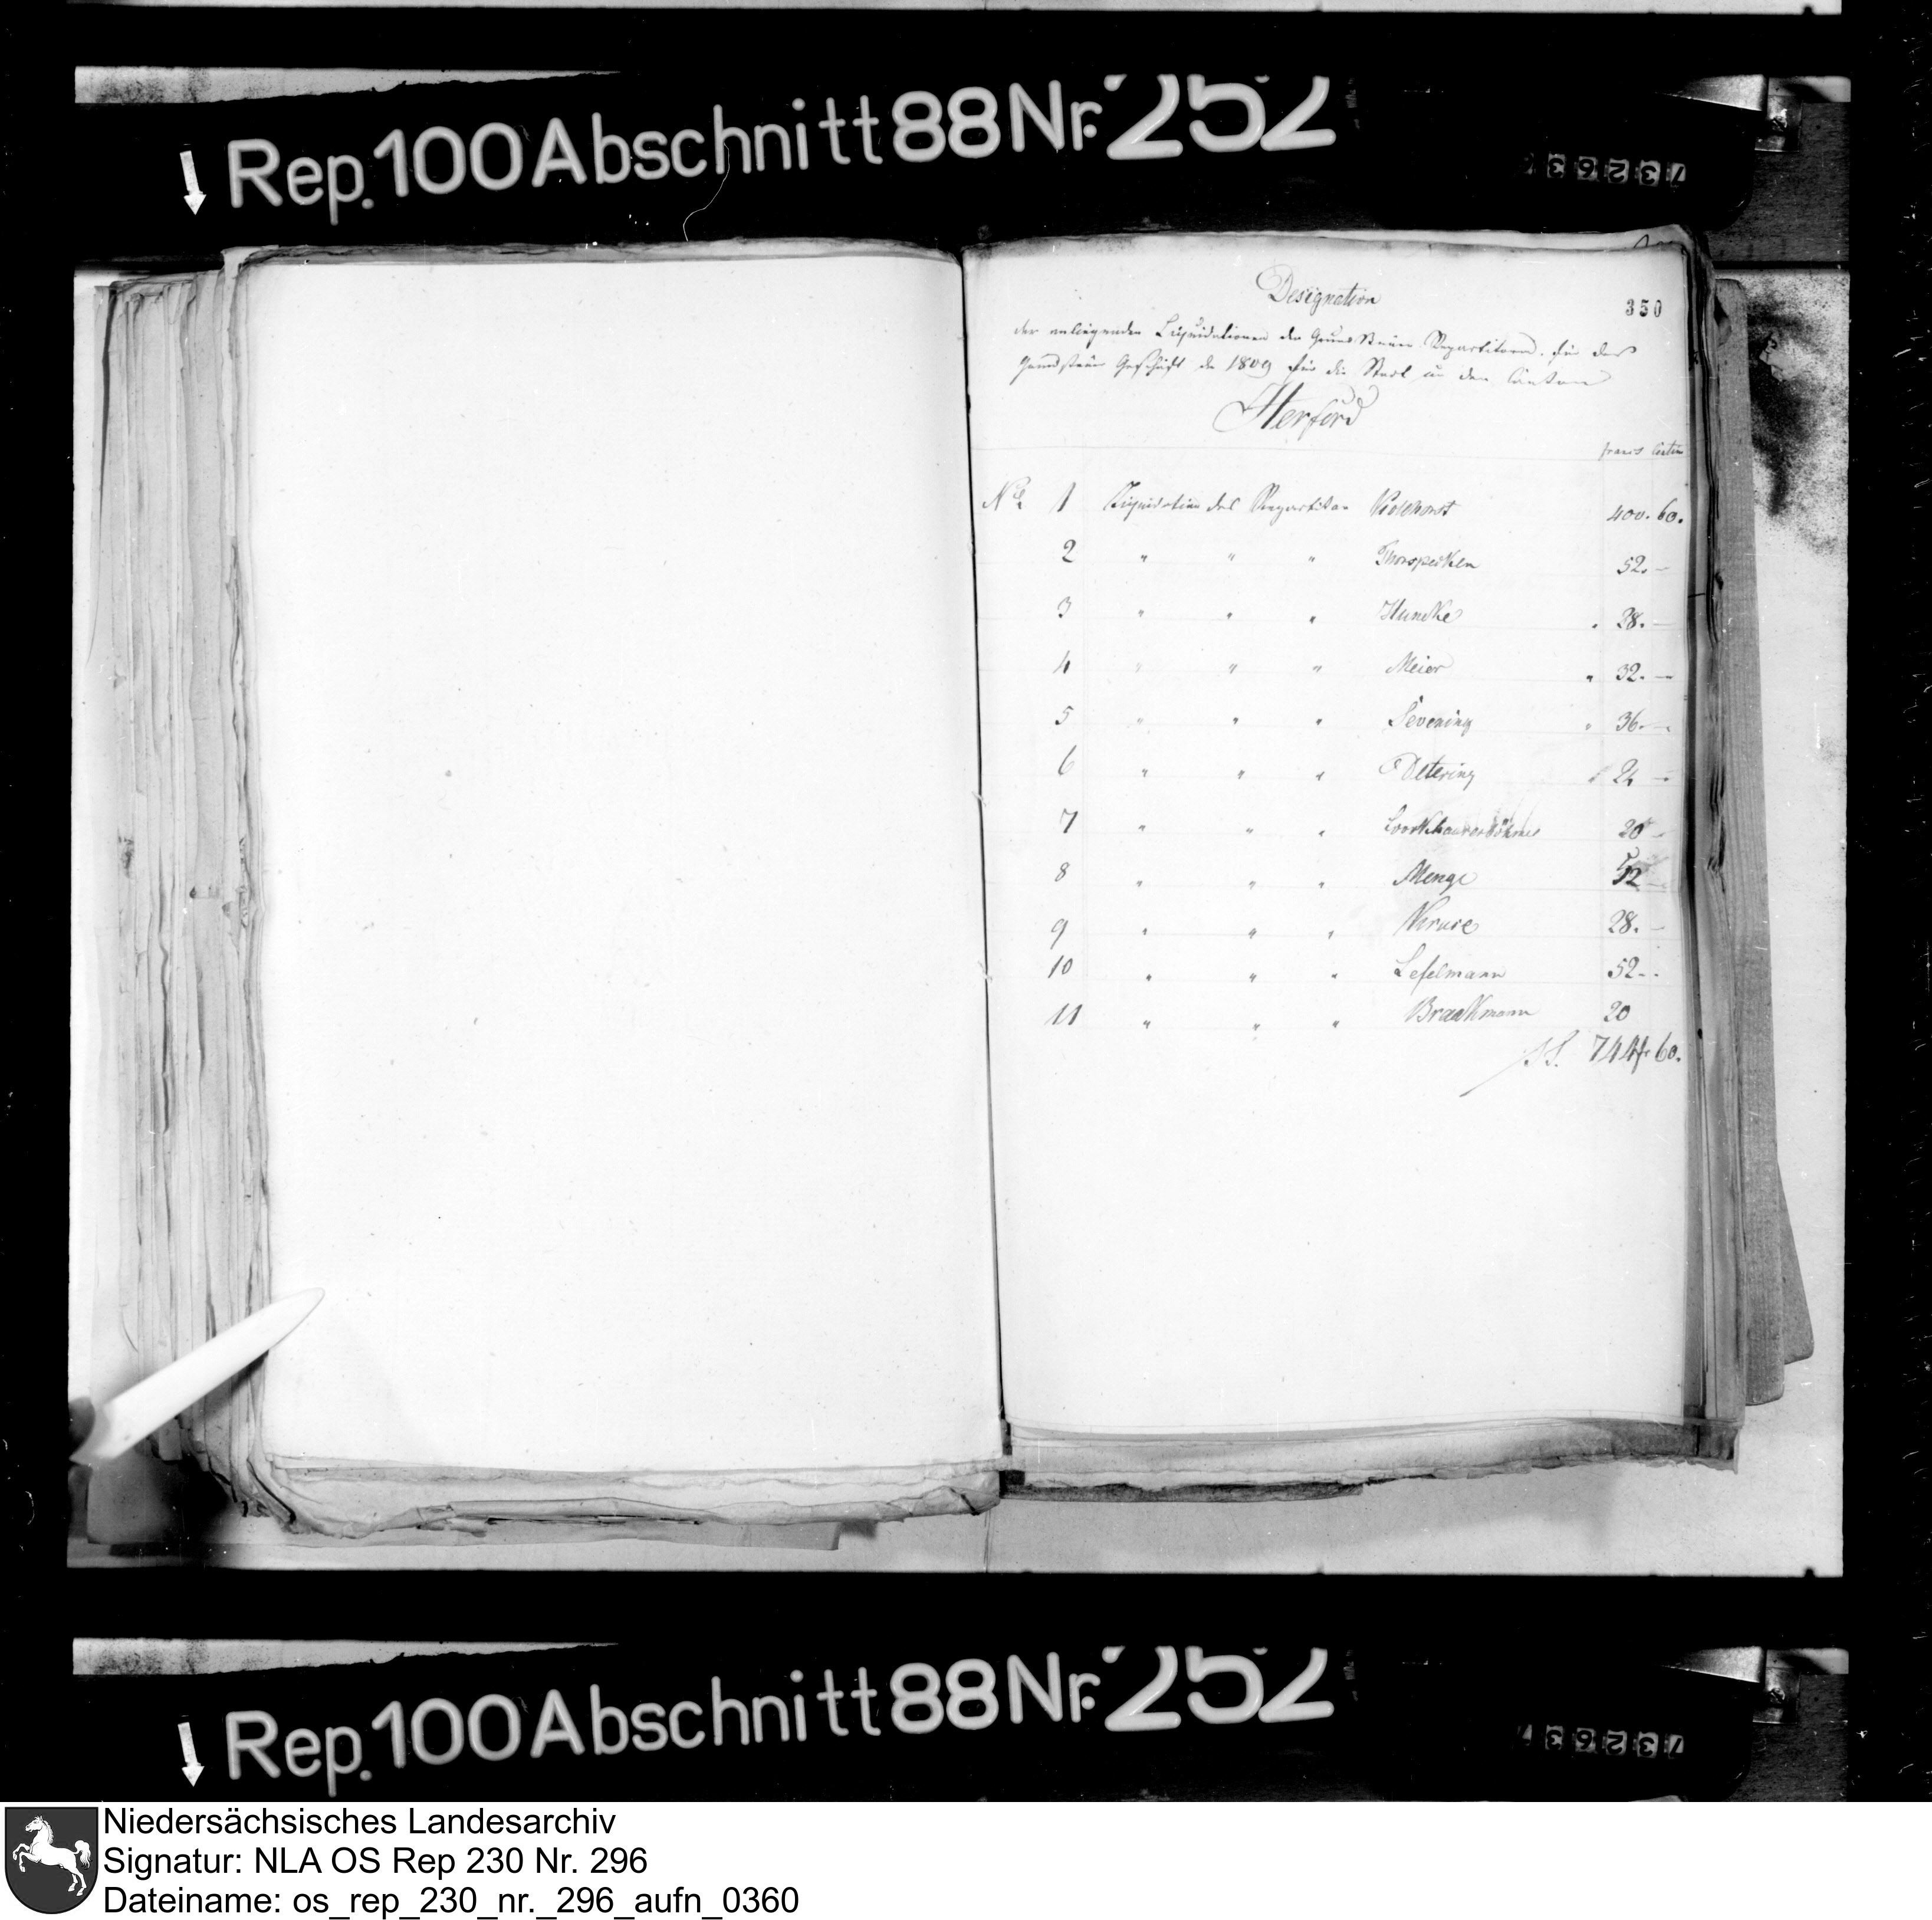 Rep. 100 Abschnitt 88 Nr. 252
732637
Designation
350
der anliegenden Liquidationen der Grund Steuer Repartitoren für das
Grundsteuer Geschäft de 1809 für die Stadt und den Canton
Herford
francs Centim
No 1 Liquidation des Repartitor 400. 60.
2 " " " 52. -
3 " " " Huncke " 28. -
4 " " " Meier " 32. -
5 " " " Sevening " 36. -
6 " " " Detering " 24 -
7 " " " 20 -
8 " " " Menge 52 -
9 " " " 28. -
10 " " " Lefelmann 52 -
11 " " " Braakmann 20
S. 744 fr 60.
Rep. 100 Abschnitt 88 Nr. 252
732637
Niedersächsisches Landesarchiv
Signatur: NLA OS Rep 230 Nr. 296
Dateiname: os_rep_230_nr._296_aufn_0360